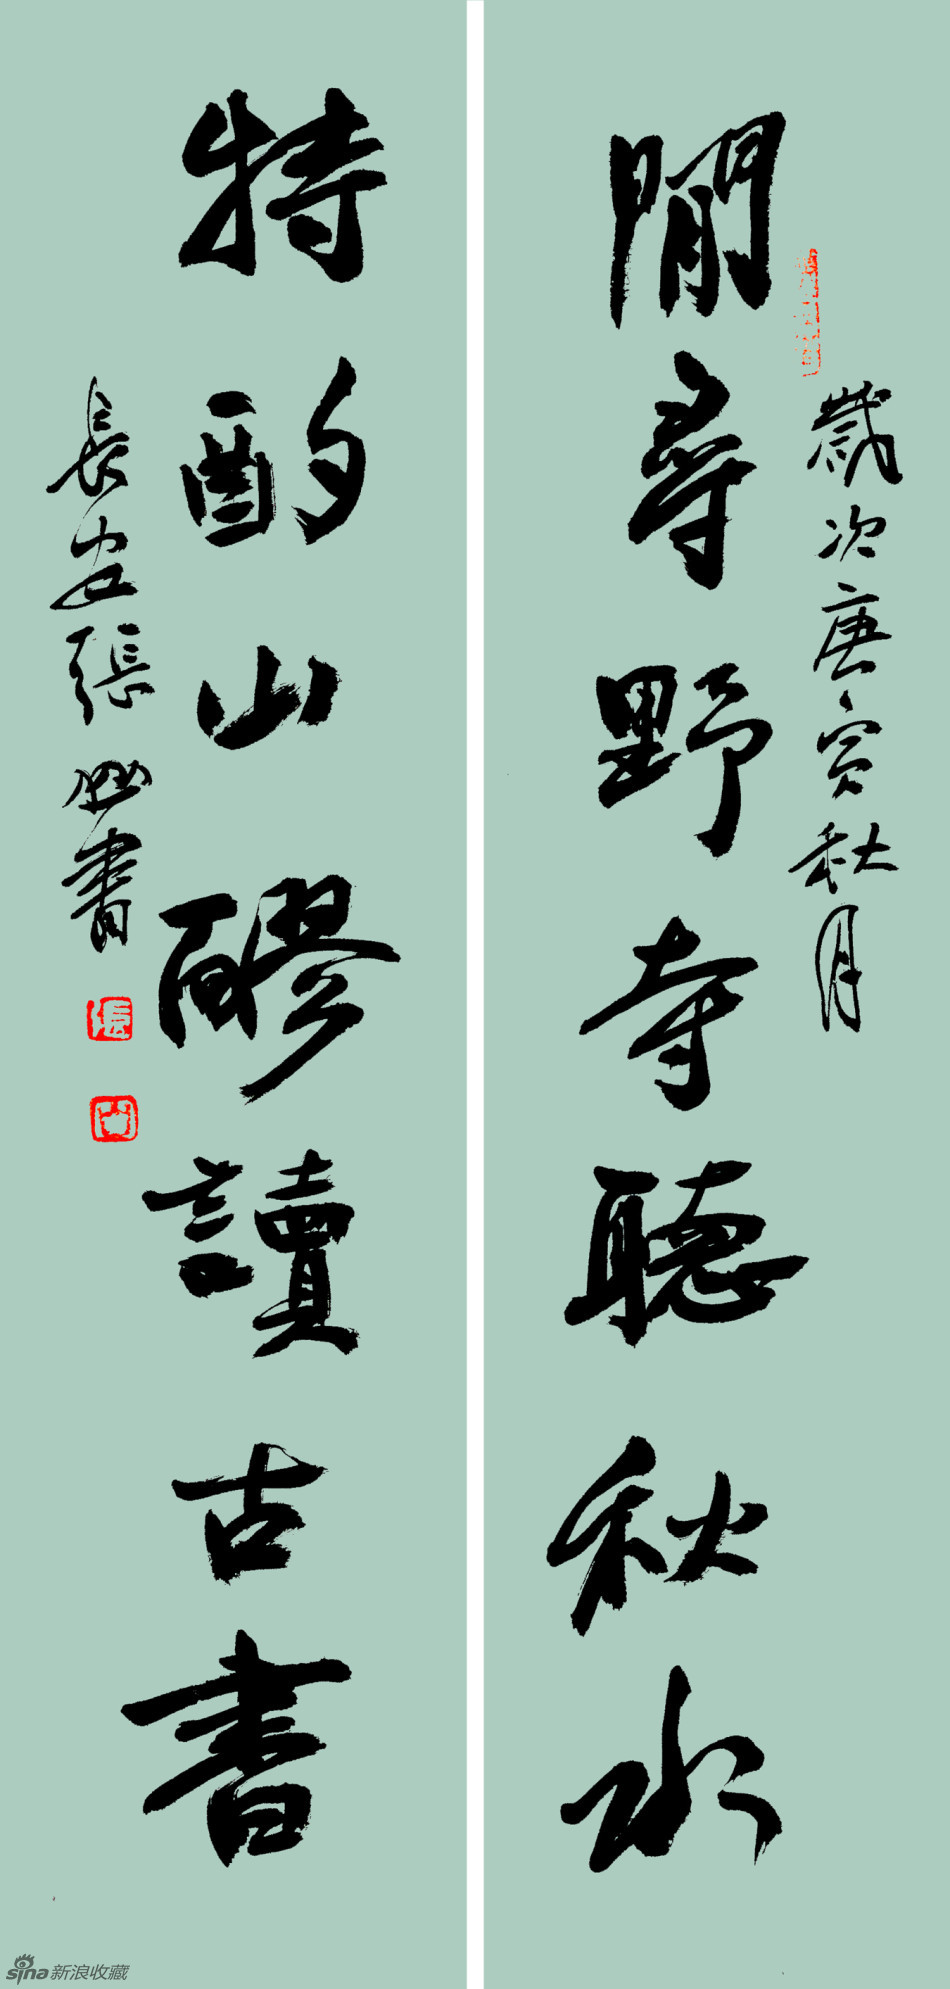 歲次庚寅秋月
閒尋野寺聽秋水
特酌山醪讀古書
長安張 書
張
sina新浪收藏